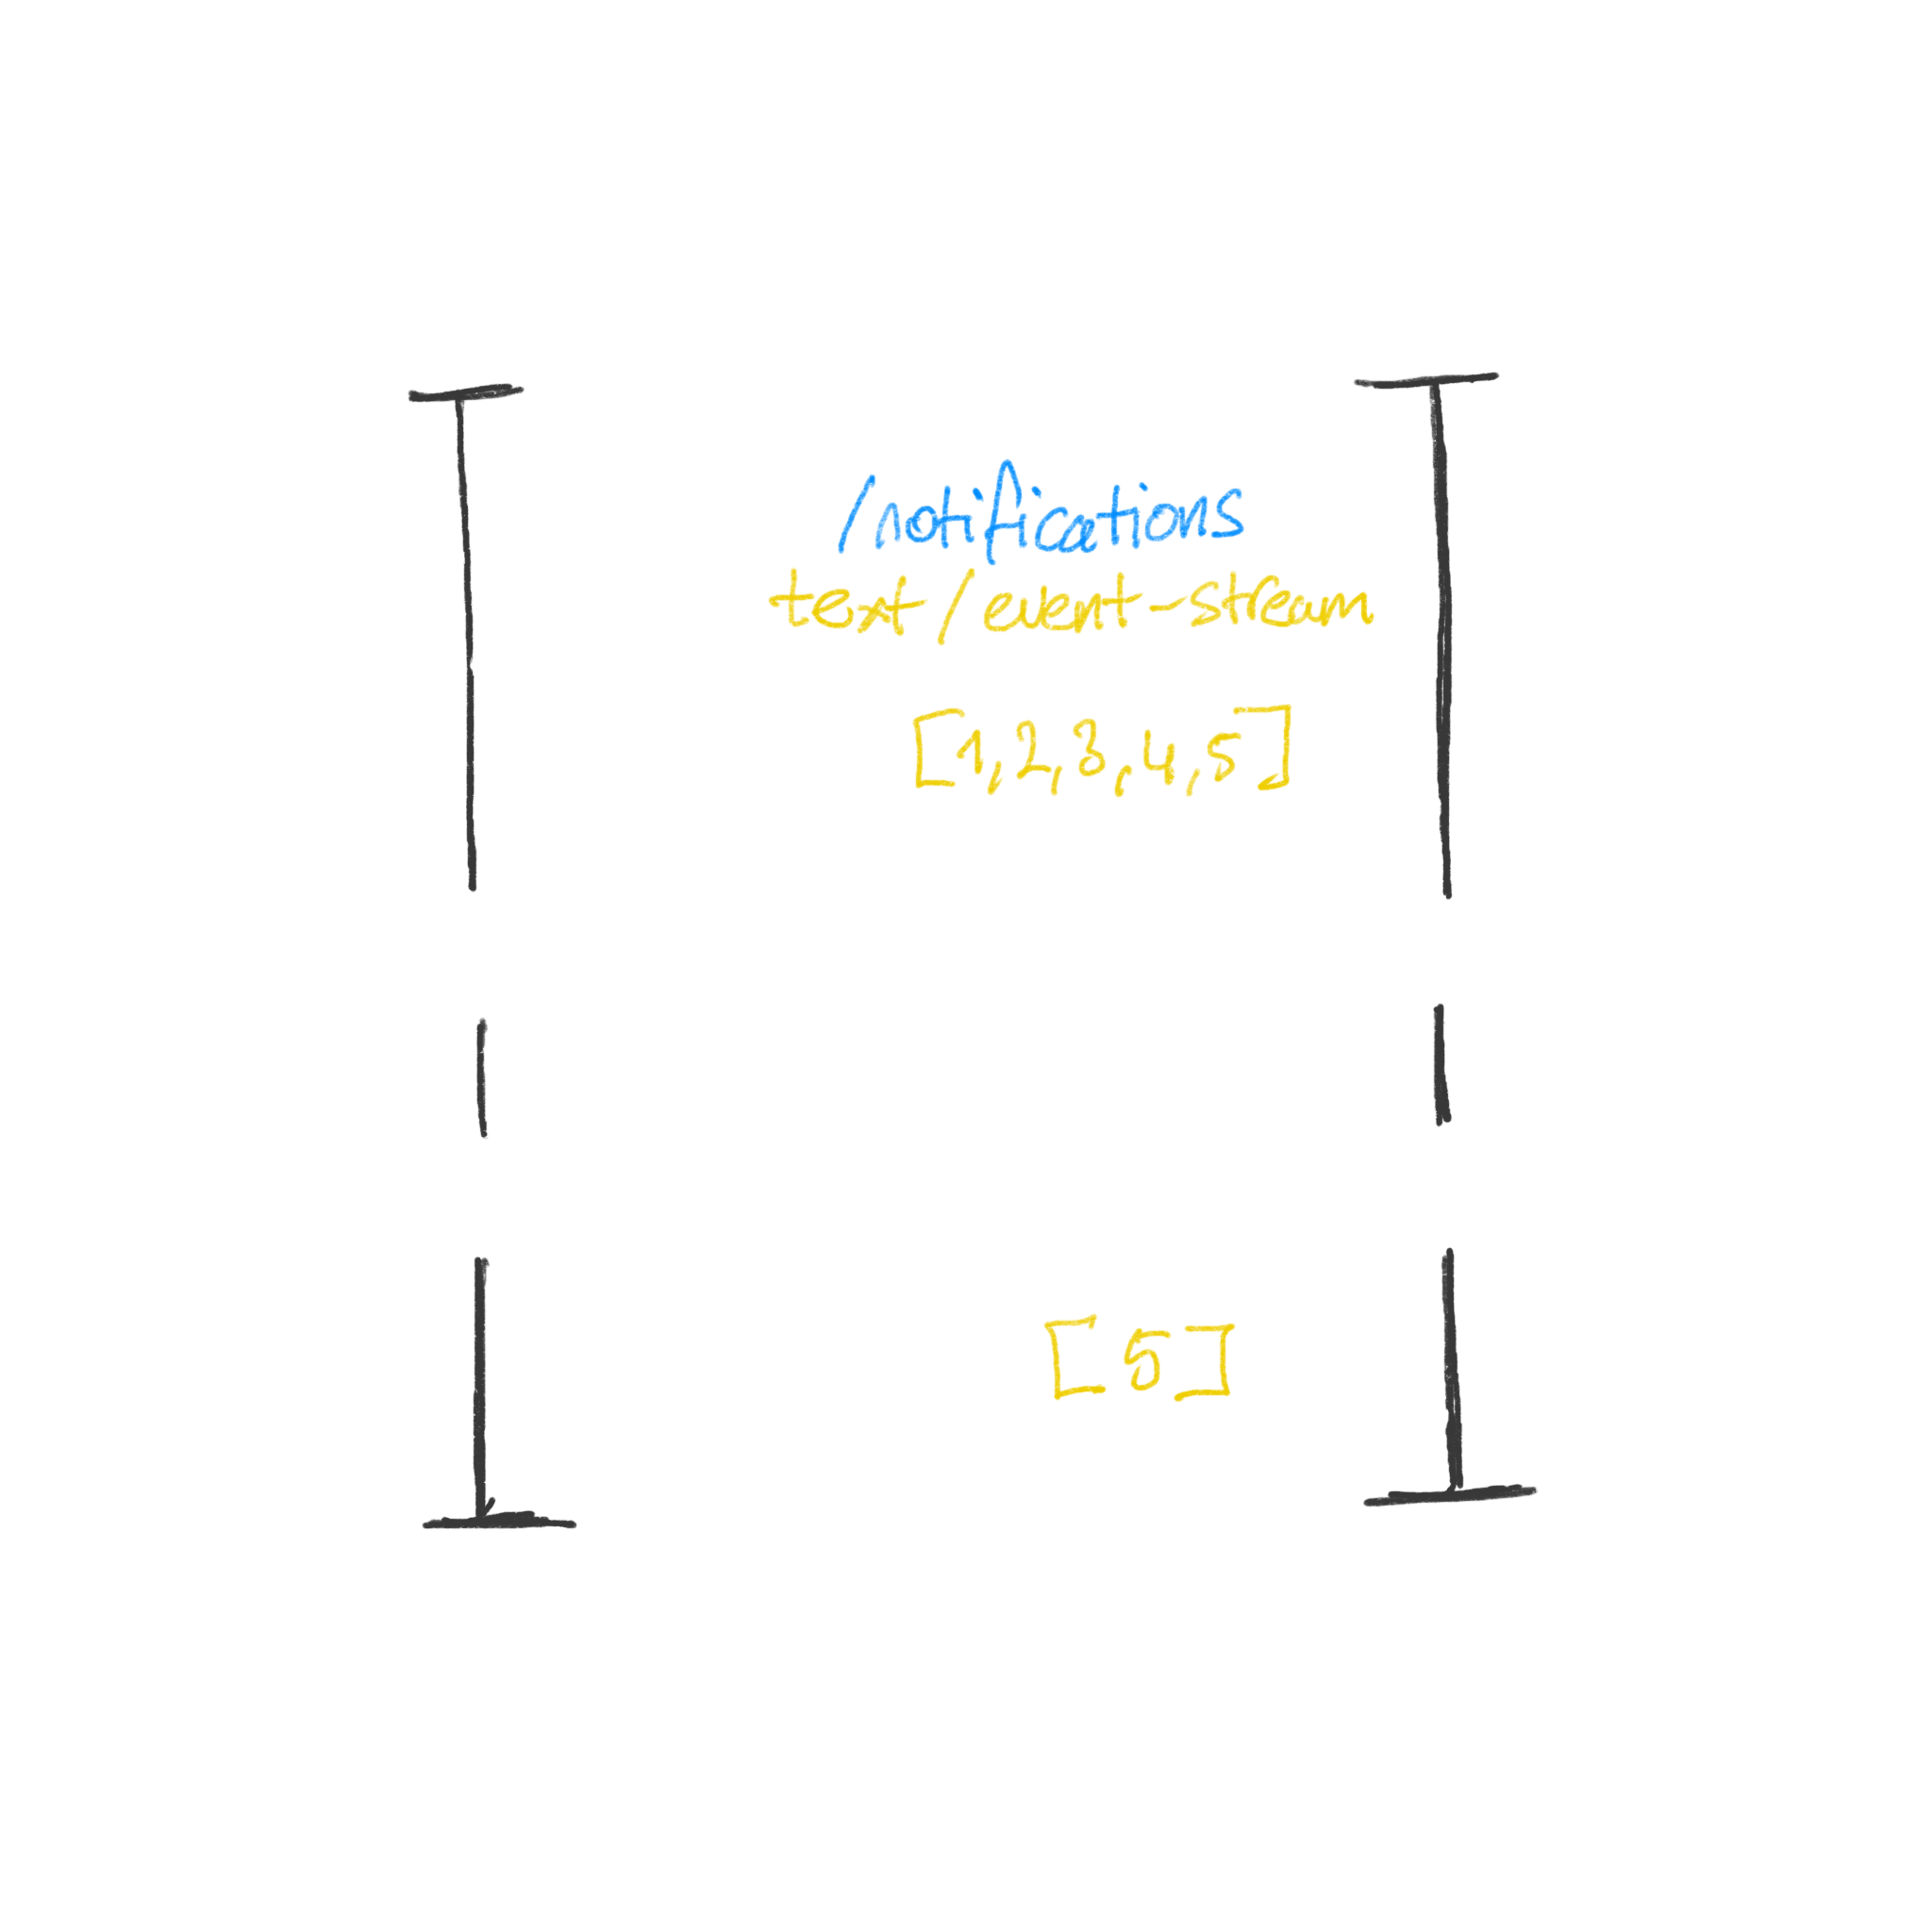 /notifications
text/event-stream
[1,2,3,4,5]
[5]